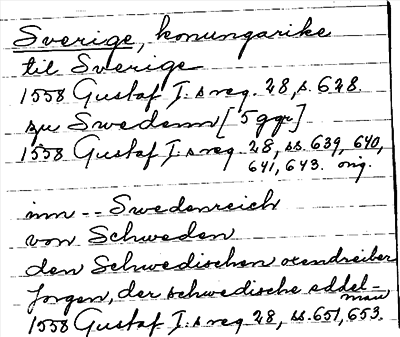 Sverige, konungarike
til Sverige
1558 Gustaf I:s reg. 28, s. 628.
zu Swedenn [5 ggr]
1558 Gustaf I:s reg. 28, ss. 639, 640,
641, 643. orig.
inn -- Swedenreich
von Schweden
den Schwedischen
Jorgen, der schwedische eddel-
man
1558 Gustaf I:s reg 28, ss. 651, 653.